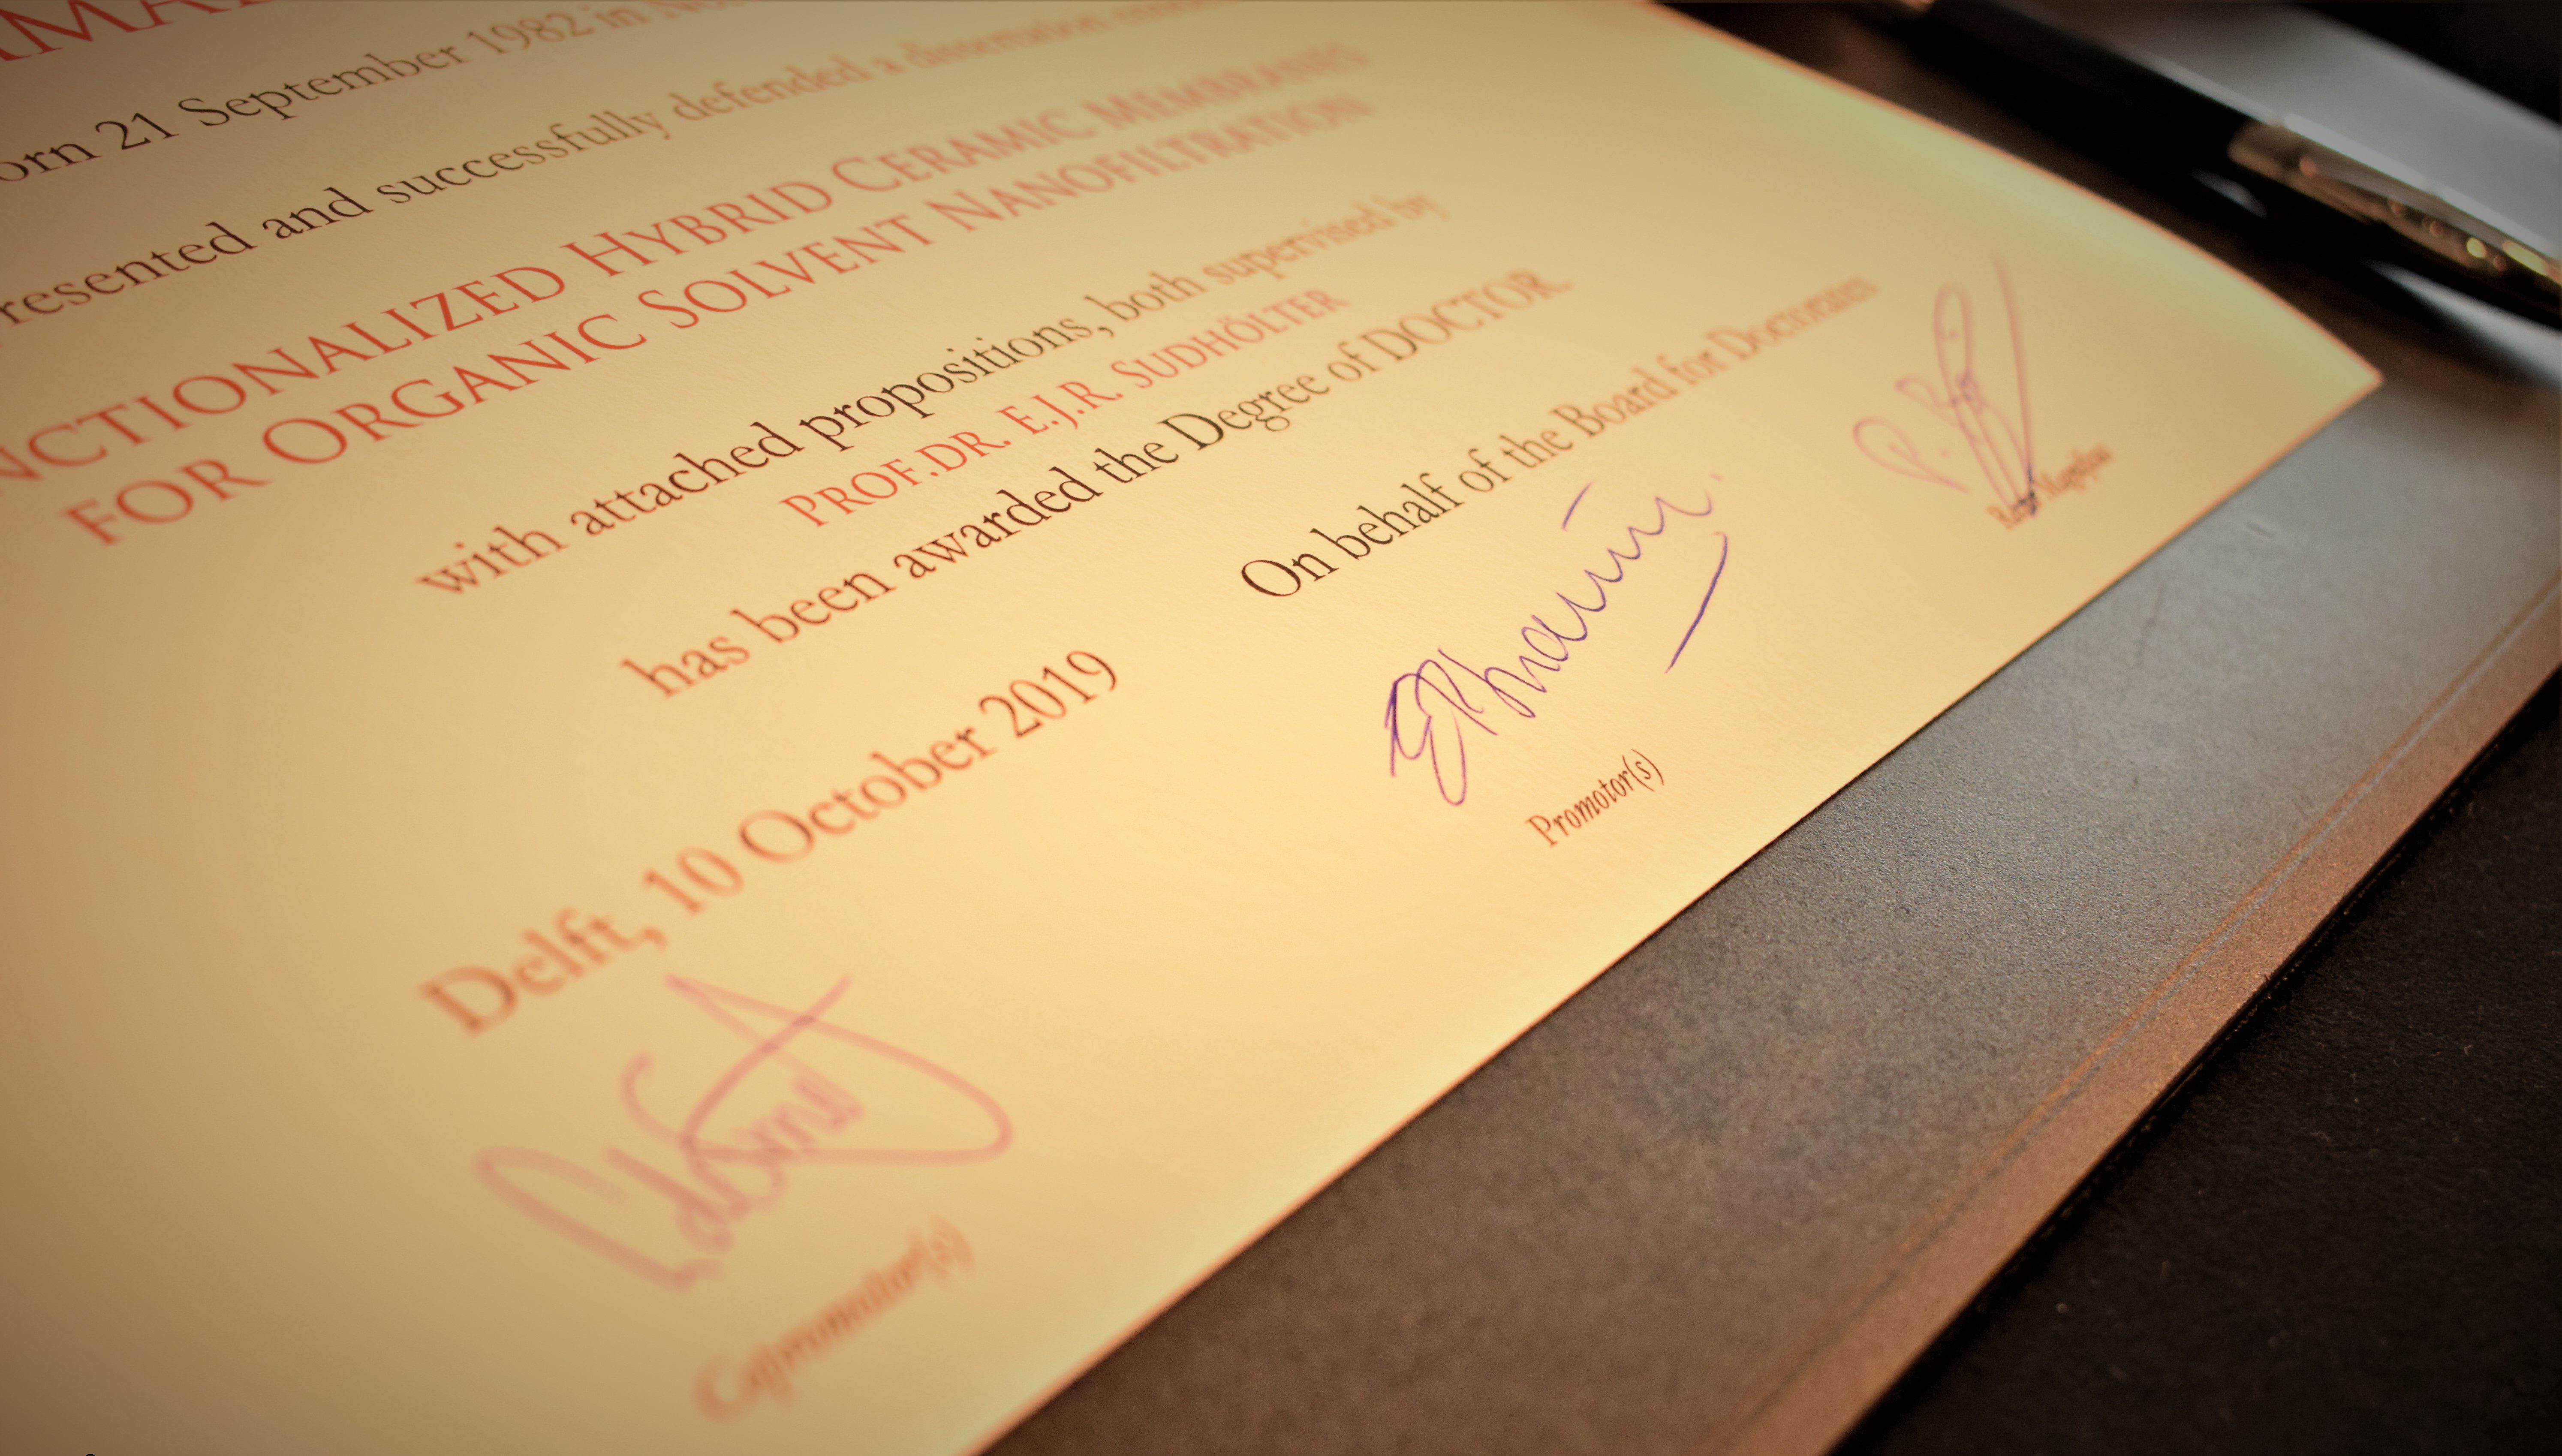 orn 21 September 1982 in
resented and successfully defended a dissertation
NCTIONALIZED HYBRID CERAMIC MEMBRANES
FOR ORGANIC SOLVENT NANOFILTRATION
with attached propositions, both supervised by
PROF.DR. E.J.R. SUDHÖLTER
has been awarded the Degree of DOCTOR.
On behalf of the Board for Doctorates
Delft, 10 October 2019
Rector Magnificus
Promotor(s)
Copromotor(s)